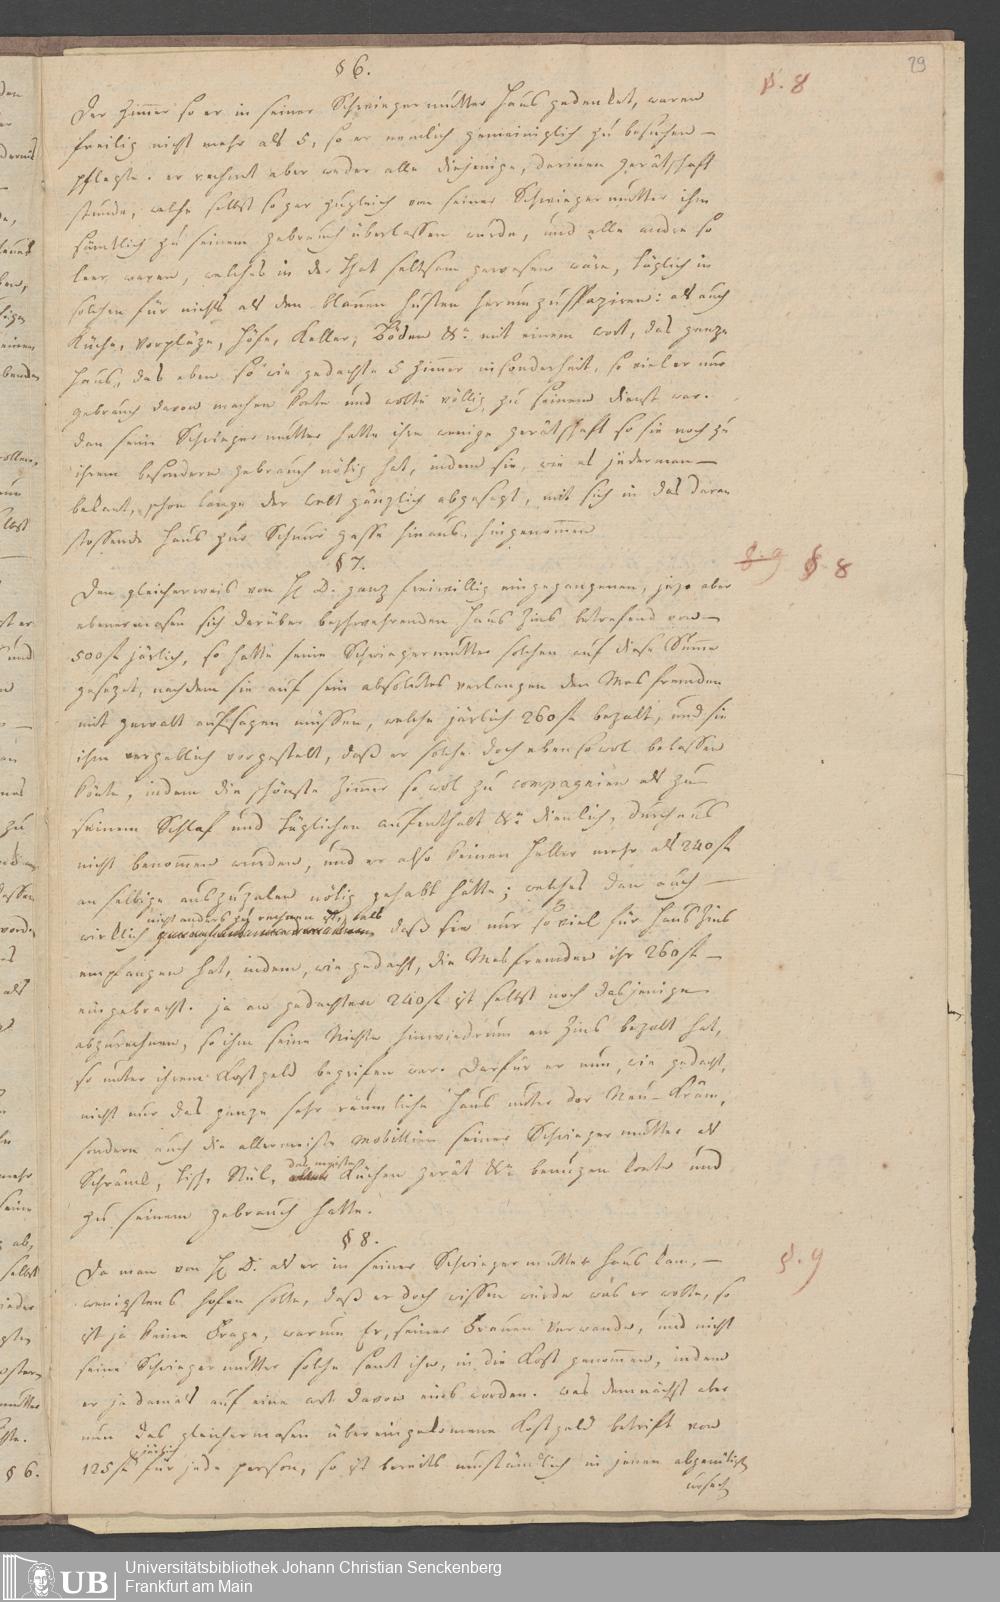 29
§ 6.
§. 8
Der Zimer so er in seiner Schwieger mutter Haus gedenket, waren
freilig nicht mehr als 5, so er nemlich gemeiniglich zu besuchen –
pflegte. er rechnet aber weder alle diejenige, darinen gerätschaft
stunde, welche selbst so gar zugleich von seiner Schwieger mutter ihm
sämtlich zu seinem gebrauch überlassen wurde, und alle andre so
leer waren, welches in der That seltsam gewesen wäre, täglich in
solchen für nichts als den blauen husten herum zu spaziren: als auch
Küche, Vorpläze, Höfe, Keller, Böden &c. mit einem wort, das ganze
Haus, das eben so wie gedachte 5 Zimer insonderheit, so viel er nur
gebrauch davon machen konte und wolte völlig zu seinem dienst war.
dan seine Schwieger mutter hatte ihre wenige gerätschaft so sie noch zu
ihrem besondern gebrauch nötig hat, indem sie, wie es jederman –
bekant, schon lange der welt gänzlich abgesagt, mit sich in das daran
stossende Haus zur Schnur gasse hinaus, hingenommen
§ 7.
§. 9 § 8
Den gleicherweis von H. D. ganz freiwillig eingegangenen, jezo aber
ebenermasen sich darüber beschwehrenden Haus Zins betrefend von –
500 f. järlich, so hatte seine Schwiegermutter solchen auf diese Summe
gesezet, nachdem sie auf sein absolutes verlangen den Mesfremden
mit gewalt aufsagen müssen, welche järlich 260 f. bezalt, und sie
ihm vergeblich vorgestelt, daß er solche doch eben so wol belassen
könte, indem die schönste Zimer so wol zu compagnien als zu
seinem Schlaf und täglichen aufenthalt &c. dienlich, durchaus
nicht benommen wurden, und er also keinen Heller mehr als 240 f.
an selbige auszuzalen nötig gehabt hätte; welches dan auch –
nicht anders zu rechnen ist, als
wirklich daß sie nur so viel für Haus Zins
empfangen hat, indem, wie gedacht, die Mesfremden ihr 260 f. –
eingebracht. ja an gedachten 240 f. ist selbst noch dasjenige
abzurechnen, so ihm seine Nichte hinwiedrum an Zins bezalt hat,
so unter ihrem Kostgeld begrifen war. Darfür er nun, wie gedacht,
nicht nur das ganze sehr räumliche Haus unter der Neu-Kräm,
sondern auch die allermeiste Mobillien seiner Schwieger mutter als
das meiste
Schränk, Tisch, Stül, Küchen gerät &c. benuzen konte und
zu seinem gebrauch hatte.
§ 8.
§. 9
Da man von H. D. als er in seiner Schwieger mutter Haus kam, –
wenigstens hofen solte, daß er doch wissen würde was er wolte, so
ist ja keine Frage, warum Er, seiner Frauen Verwande, und nicht
seine Schwieger mutter solche samt ihr, in die Kost genommen, indem
er ja damals auf eine art davon eins worden. was demnächst aber
nun das gleichermasen übereingekomene Kostgeld betrift von
järlich
125 f. für jede person, so ist bereits umständlich in jenem abgenötigt
ursach
§ 6.
Universitätsbibliothek Johann Christian Senckenberg
Frankfurt am Main
UB